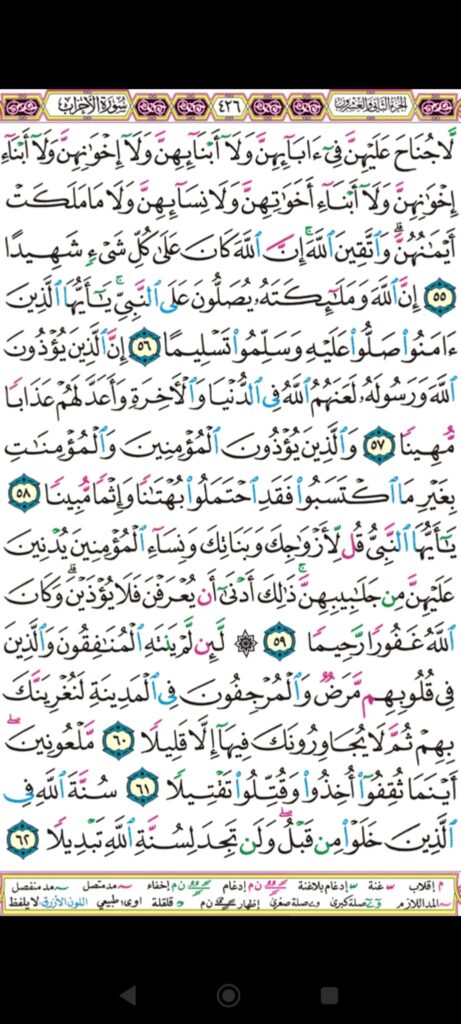 الجزء الثاني والعشرون ٤٢٦ سورة الأحزاب
لَّا جُنَاحَ عَلَيْهِنَّ فِىٓ ءَابَآئِهِنَّ وَلَآ أَبْنَآئِهِنَّ وَلَآ إِخْوَٰنِهِنَّ وَلَآ أَبْنَآءِ
إِخْوَٰنِهِنَّ وَلَآ أَبْنَآءِ أَخَوَٰتِهِنَّ وَلَا نِسَآئِهِنَّ وَلَا مَا مَلَكَتْ
أَيْمَٰنُهُنَّ ۗ وَٱتَّقِينَ ٱللَّهَ ۚ إِنَّ ٱللَّهَ كَانَ عَلَىٰ كُلِّ شَىْءٍ شَهِيدًا
٥٥ إِنَّ ٱللَّهَ وَمَلَٰٓئِكَتَهُۥ يُصَلُّونَ عَلَى ٱلنَّبِىِّ ۚ يَٰٓأَيُّهَا ٱلَّذِينَ
ءَامَنُوا۟ صَلُّوا۟ عَلَيْهِ وَسَلِّمُوا۟ تَسْلِيمًا ٥٦ إِنَّ ٱلَّذِينَ يُؤْذُونَ
ٱللَّهَ وَرَسُولَهُۥ لَعَنَهُمُ ٱللَّهُ فِى ٱلدُّنْيَا وَٱلْءَاخِرَةِ وَأَعَدَّ لَهُمْ عَذَابًا
مُّهِينًا ٥٧ وَٱلَّذِينَ يُؤْذُونَ ٱلْمُؤْمِنِينَ وَٱلْمُؤْمِنَٰتِ
بِغَيْرِ مَا ٱكْتَسَبُوا۟ فَقَدِ ٱحْتَمَلُوا۟ بُهْتَٰنًا وَإِثْمًا مُّبِينًا ٥٨
يَٰٓأَيُّهَا ٱلنَّبِىُّ قُل لِّأَزْوَٰجِكَ وَبَنَاتِكَ وَنِسَآءِ ٱلْمُؤْمِنِينَ يُدْنِينَ
عَلَيْهِنَّ مِن جَلَٰبِيبِهِنَّ ۚ ذَٰلِكَ أَدْنَىٰٓ أَن يُعْرَفْنَ فَلَا يُؤْذَيْنَ ۗ وَكَانَ
ٱللَّهُ غَفُورًا رَّحِيمًا ٥٩ ۞ لَّئِن لَّمْ يَنتَهِ ٱلْمُنَٰفِقُونَ وَٱلَّذِينَ
فِى قُلُوبِهِم مَّرَضٌ وَٱلْمُرْجِفُونَ فِى ٱلْمَدِينَةِ لَنُغْرِيَنَّكَ
بِهِمْ ثُمَّ لَا يُجَاوِرُونَكَ فِيهَآ إِلَّا قَلِيلًا ٦٠ مَّلْعُونِينَ ۖ
أَيْنَمَا ثُقِفُوٓا۟ أُخِذُوا۟ وَقُتِّلُوا۟ تَقْتِيلًا ٦١ سُنَّةَ ٱللَّهِ فِى
ٱلَّذِينَ خَلَوْا۟ مِن قَبْلُ ۖ وَلَن تَجِدَ لِسُنَّةِ ٱللَّهِ تَبْدِيلًا ٦٢
م إقلاب غنة إدغام بلاغنة ن م إدغام ن م إخفاء مد متصل مد منفصل
المد اللازم صلة كبرى صلة صغرى إظهار ن م قلقلة اوى: طبيعي اللون الأزرق: لا يلفظ